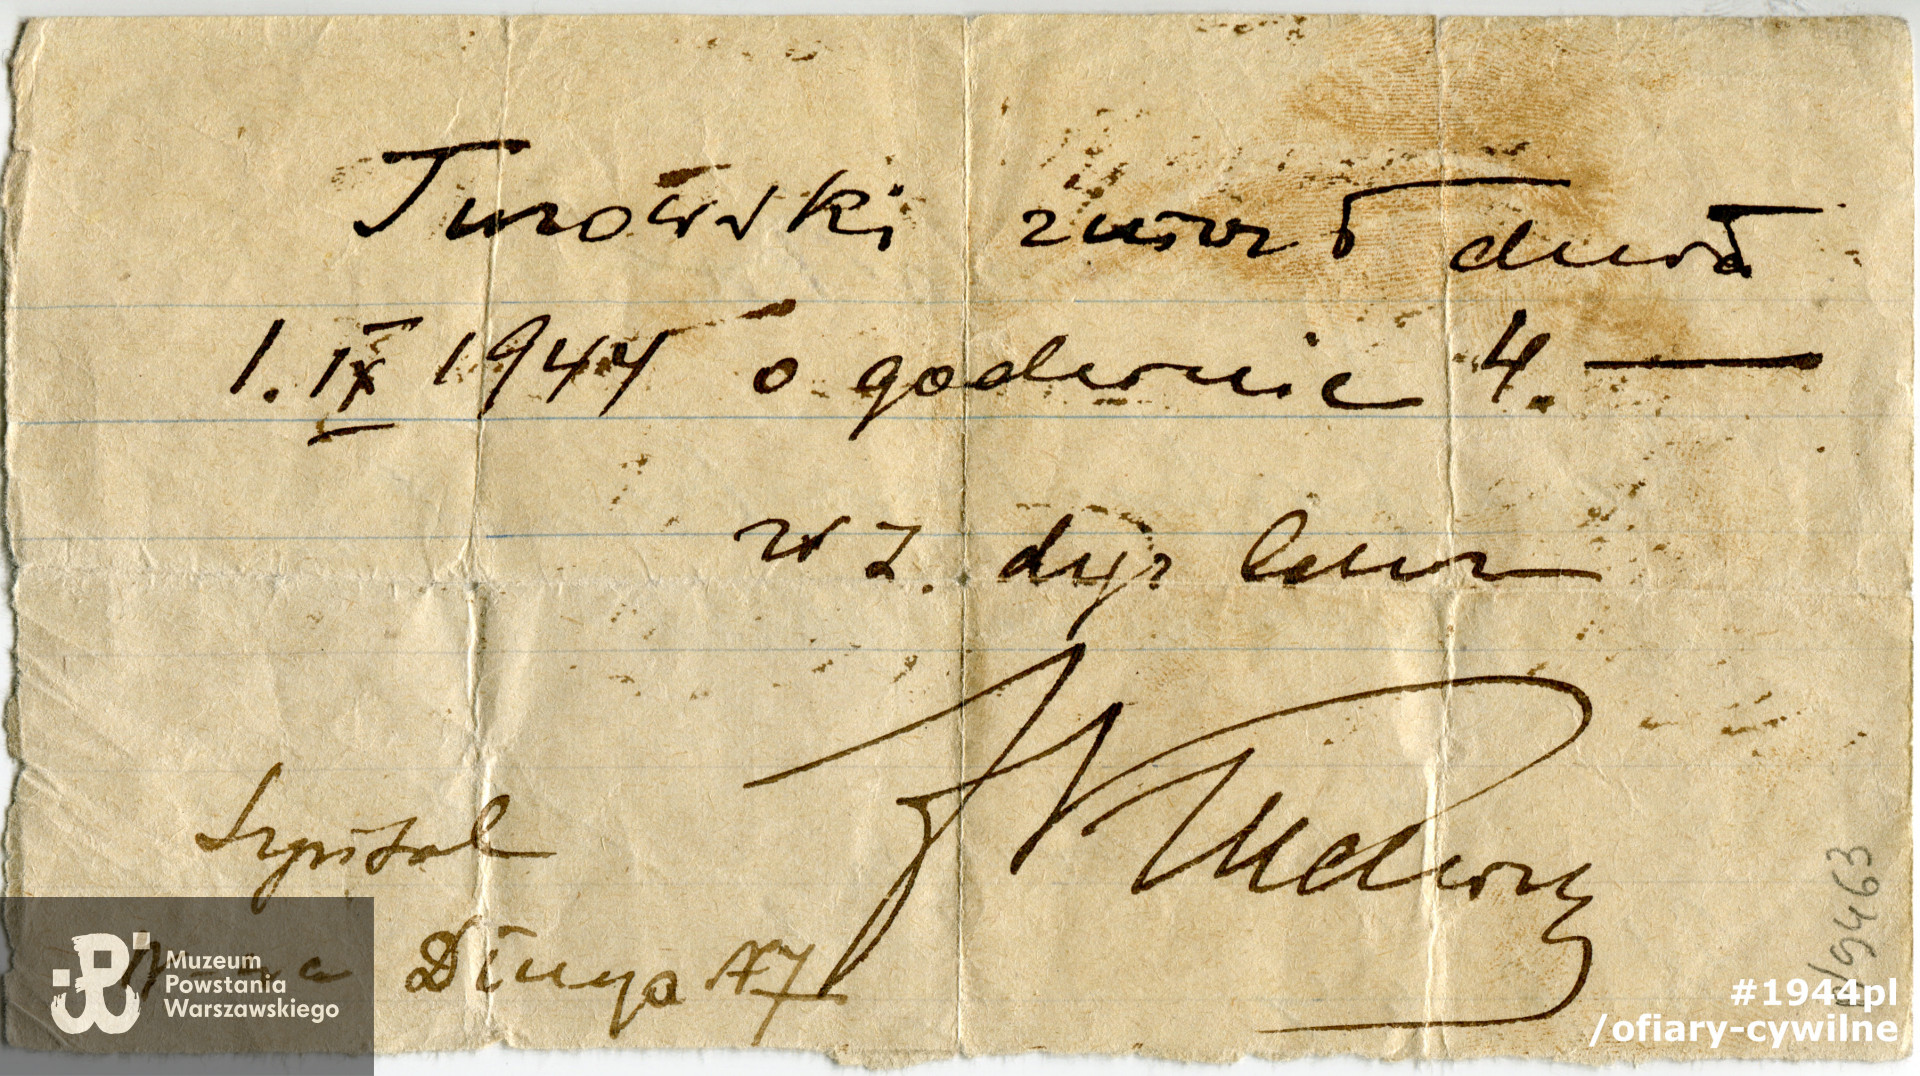 Turowski zmarł dnia
1. IX 1944 o godzinie 4. —
w z. dyż lekarz
Szpital
Długa N7
N9463
Muzeum
Powstania
Warszawskiego
#1944pl
/ofiary-cywilne